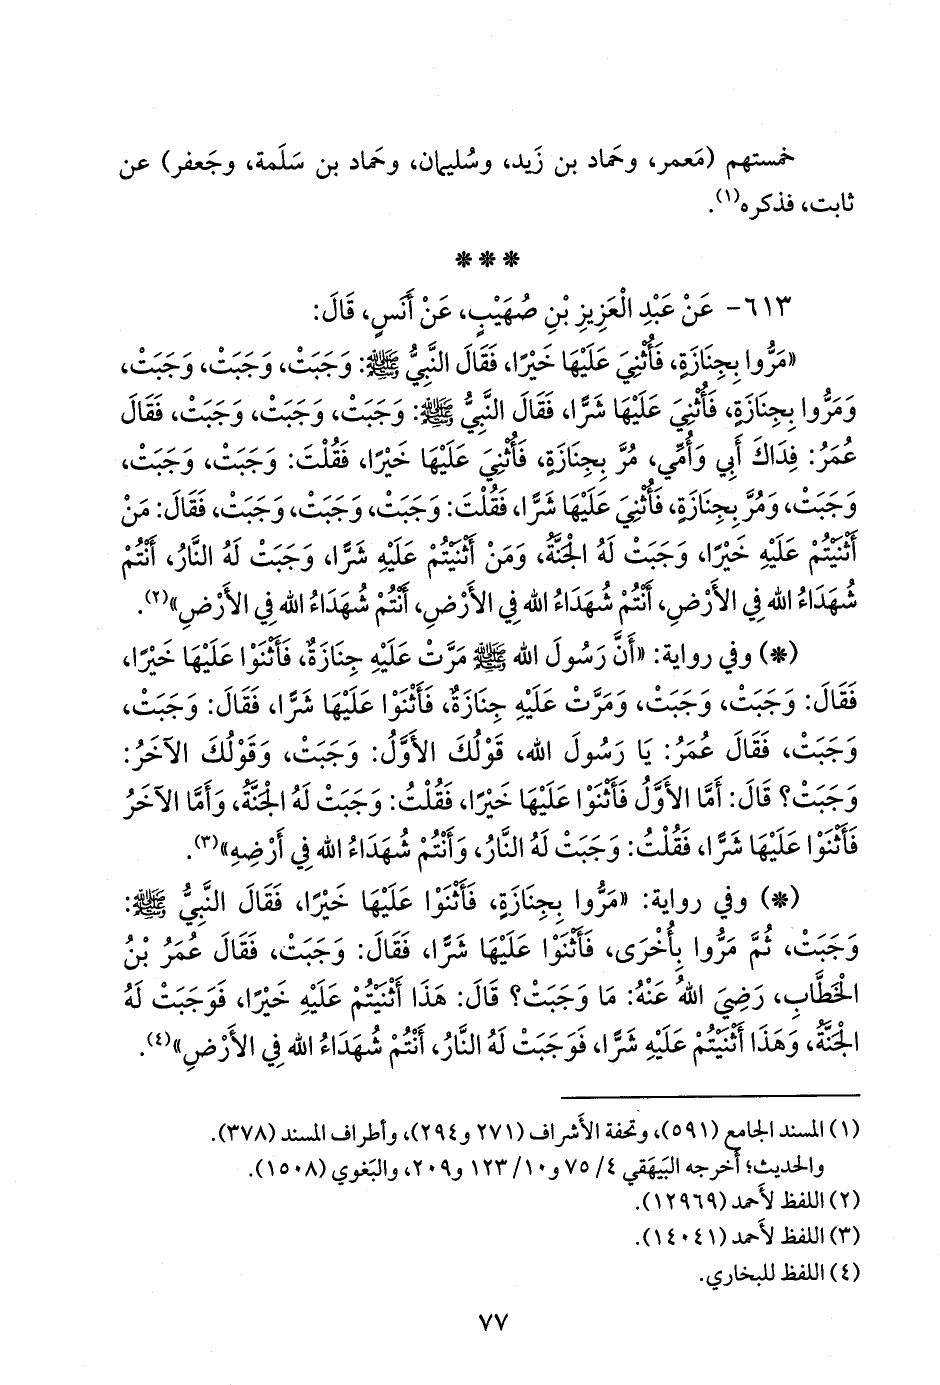 خمستهم (مَعمر، وحَماد بن زَيد، وسُليمان، وحَماد بن سَلَمة، وجَعفر) عن
ثابت، فذكره(١).
* * *
٦١٣- عَنْ عَبْدِ الْعَزِيزِ بْنِ صُهَيْبٍ، عَنْ أَنَسٍ، قَالَ:
«مَرُّوا بِجِنَازَةٍ، فَأُثْنِيَ عَلَيْهَا خَيْرًا، فَقَالَ النَّبِيُّ ﷺ: وَجَبَتْ، وَجَبَتْ، وَجَبَتْ،
وَمَرُّوا بِجِنَازَةٍ، فَأُثْنِيَ عَلَيْهَا شَرًّا، فَقَالَ النَّبِيُّ ﷺ: وَجَبَتْ، وَجَبَتْ، وَجَبَتْ، فَقَالَ
عُمَرُ: فِدَاكَ أَبِي وَأُمِّي، مُرَّ بِجِنَازَةٍ، فَأُثْنِيَ عَلَيْهَا خَيْرًا، فَقُلْتَ: وَجَبَتْ، وَجَبَتْ،
وَجَبَتْ، وَمُرَّ بِجِنَازَةٍ، فَأُثْنِيَ عَلَيْهَا شَرًّا، فَقُلْتَ: وَجَبَتْ، وَجَبَتْ، وَجَبَتْ، فَقَالَ: مَنْ
أَثْنَيْتُمْ عَلَيْهِ خَيْرًا، وَجَبَتْ لَهُ الْجَنَّةُ، وَمَنْ أَثْنَيْتُمْ عَلَيْهِ شَرًّا، وَجَبَتْ لَهُ النَّارُ، أَنْتُمْ
شُهَدَاءُ الله فِي الأَرْضِ، أَنْتُمْ شُهَدَاءُ الله فِي الأَرْضِ، أَنْتُمْ شُهَدَاءُ الله فِي الأَرْضِ»(٢).
(*) وفي رواية: «أَنَّ رَسُولَ الله ﷺ مَرَّتْ عَلَيْهِ جِنَازَةٌ، فَأَثْنَوْا عَلَيْهَا خَيْرًا،
فَقَالَ: وَجَبَتْ، وَجَبَتْ، وَمَرَّتْ عَلَيْهِ جِنَازَةٌ، فَأَثْنَوْا عَلَيْهَا شَرًّا، فَقَالَ: وَجَبَتْ،
وَجَبَتْ، فَقَالَ عُمَرُ: يَا رَسُولَ الله، قَوْلُكَ الأَوَّلُ: وَجَبَتْ، وَقَوْلُكَ الآخَرُ:
وَجَبَتْ؟ قَالَ: أَمَّا الأَوَّلُ فَأَثْنَوْا عَلَيْهَا خَيْرًا، فَقُلْتُ: وَجَبَتْ لَهُ الْجَنَّةُ، وَأَمَّا الآخَرُ
فَأَثْنَوْا عَلَيْهَا شَرًّا، فَقُلْتُ: وَجَبَتْ لَهُ النَّارُ، وَأَنْتُمْ شُهَدَاءُ الله فِي أَرْضِهِ»(٣).
(*) وفي رواية: «مَرُّوا بِجِنَازَةٍ، فَأَثْنَوْا عَلَيْهَا خَيْرًا، فَقَالَ النَّبِيُّ ﷺ:
وَجَبَتْ، ثُمَّ مَرُّوا بِأُخْرَى، فَأَثْنَوْا عَلَيْهَا شَرًّا، فَقَالَ: وَجَبَتْ، فَقَالَ عُمَرُ بْنُ
الْخَطَّابِ، رَضِيَ اللهُ عَنْهُ: مَا وَجَبَتْ؟ قَالَ: هَذَا أَثْنَيْتُمْ عَلَيْهِ خَيْرًا، فَوَجَبَتْ لَهُ
الْجَنَّةُ، وَهَذَا أَثْنَيْتُمْ عَلَيْهِ شَرًّا، فَوَجَبَتْ لَهُ النَّارُ، أَنْتُمْ شُهَدَاءُ الله فِي الأَرْضِ»(٤).
(١) المسند الجامع (٥٩١)، وتحفة الأشراف (٢٧١ و٢٩٤)، وأطراف المسند (٣٧٨).
والحديث؛ أخرجه البَيهَقي ٤/ ٧٥ و١٠/ ١٢٣ و٢٠٩، والبَغوي (١٥٠٨).
(٢) اللفظ لأَحمد (١٢٩٦٩).
(٣) اللفظ لأَحمد (١٤٠٤١).
(٤) اللفظ للبخاري.
٧٧